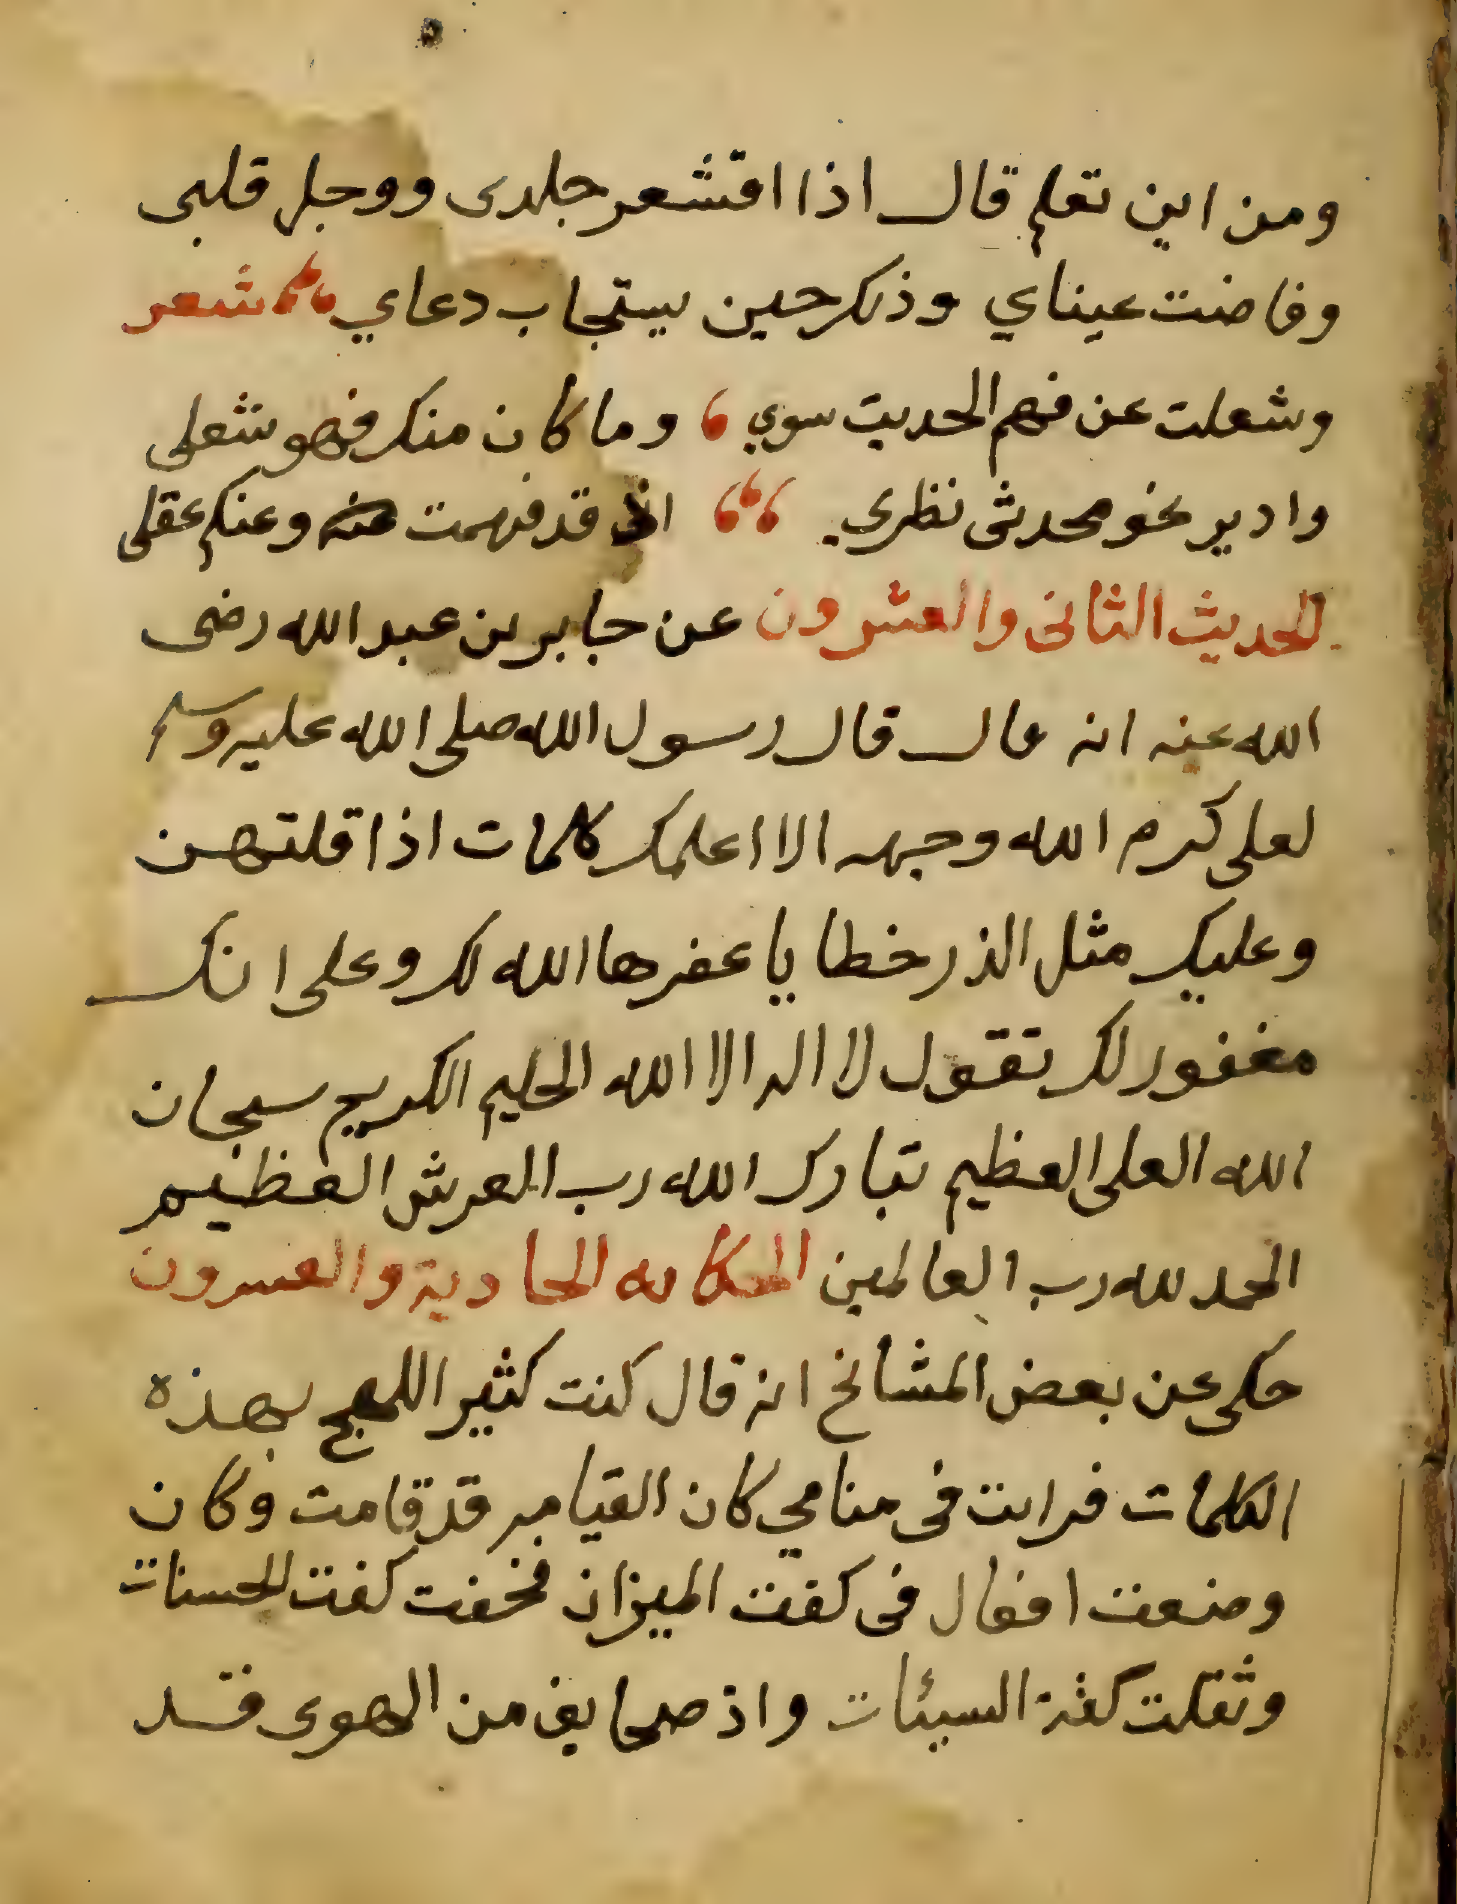 ومن اين تعلم قال اذا اقشعر جلدى ووجل قلبى
وفاضت عيناي وذلك حين يستجاب دعاي شعر
وشعلت عن فهم الحديت سوي وما كان منك فهو شعلى
وادير نحو محدثى نظري ان قد فهمت وعنكم عقلى
الحديث الثانى والعشرون عن جابر بن عبد الله رضى
الله عنه انه قال قال رسول الله صلى الله عليه وسلم
لعلى كرم الله وجهه الا اعلمك كلمات اذا قلتهن
وعليك مثل الذر خطايا عفرها الله لك وعلى انك
مغفور لك تقول لا اله الا الله الحليم الكريم سبحان
الله العلى العظيم تبارك الله رب العرش العظيم
الحمد لله رب العالمين الحكايه الحادية والعسرون
حكى عن بعض المشائخ انه قال كنت كثير اللهج بهذه
الكلمات فرايت فى منامي كان القيامه قد قامت وكان
وضعت افعال فى كفت الميزان فخفت كفت الحسنات
وثقلت كفة السيئات واذ صحايف من الهوى قد